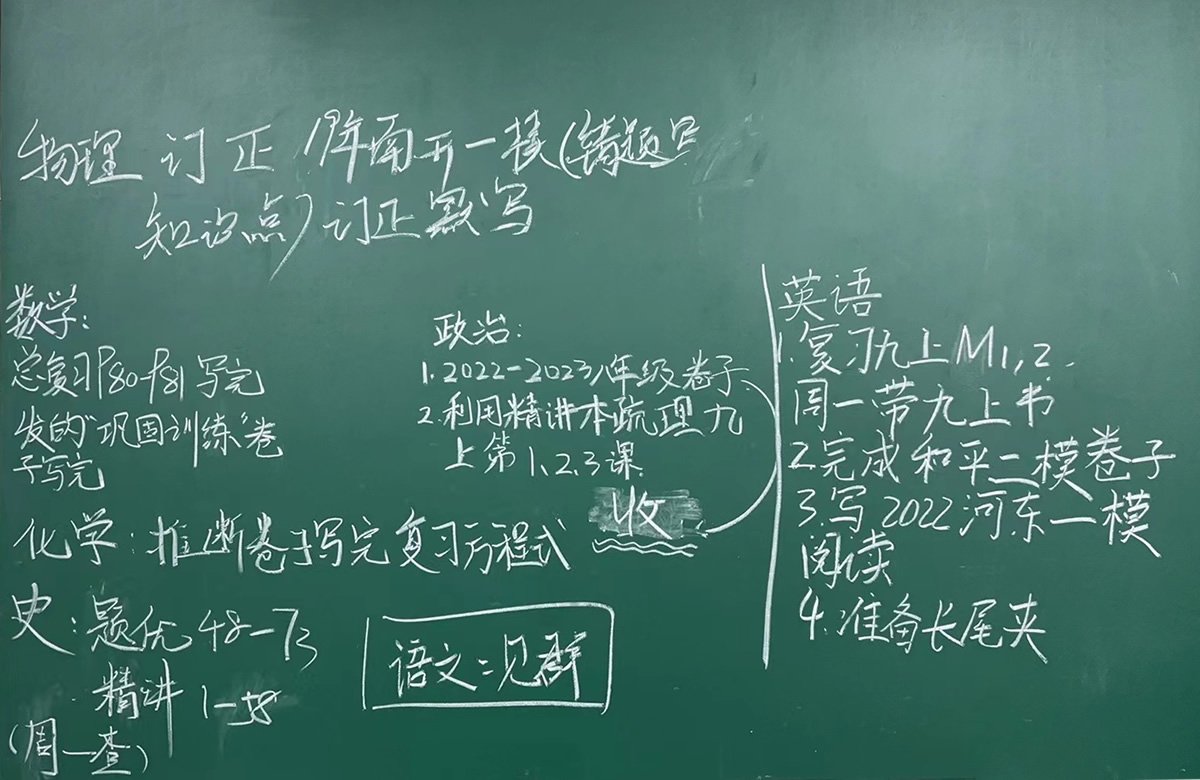 物理 订正 19年南开一模(错题
知识点) 订正默写
数学:
总复习P80-P81写完
发的“巩固训练”卷
子写完
政治:
1.2022-2023八年级卷子
2.利用精讲本疏理九
上第1、2、3课
收
化学:推断卷子写完 复习方程式
史:题优48-73
精讲 1-58
(周一查)
语文:见群
英语
1.复习九上M1,2.
周一带九上书
2.完成和平二模卷子
3.写2022河东一模
阅读
4.准备长尾夹